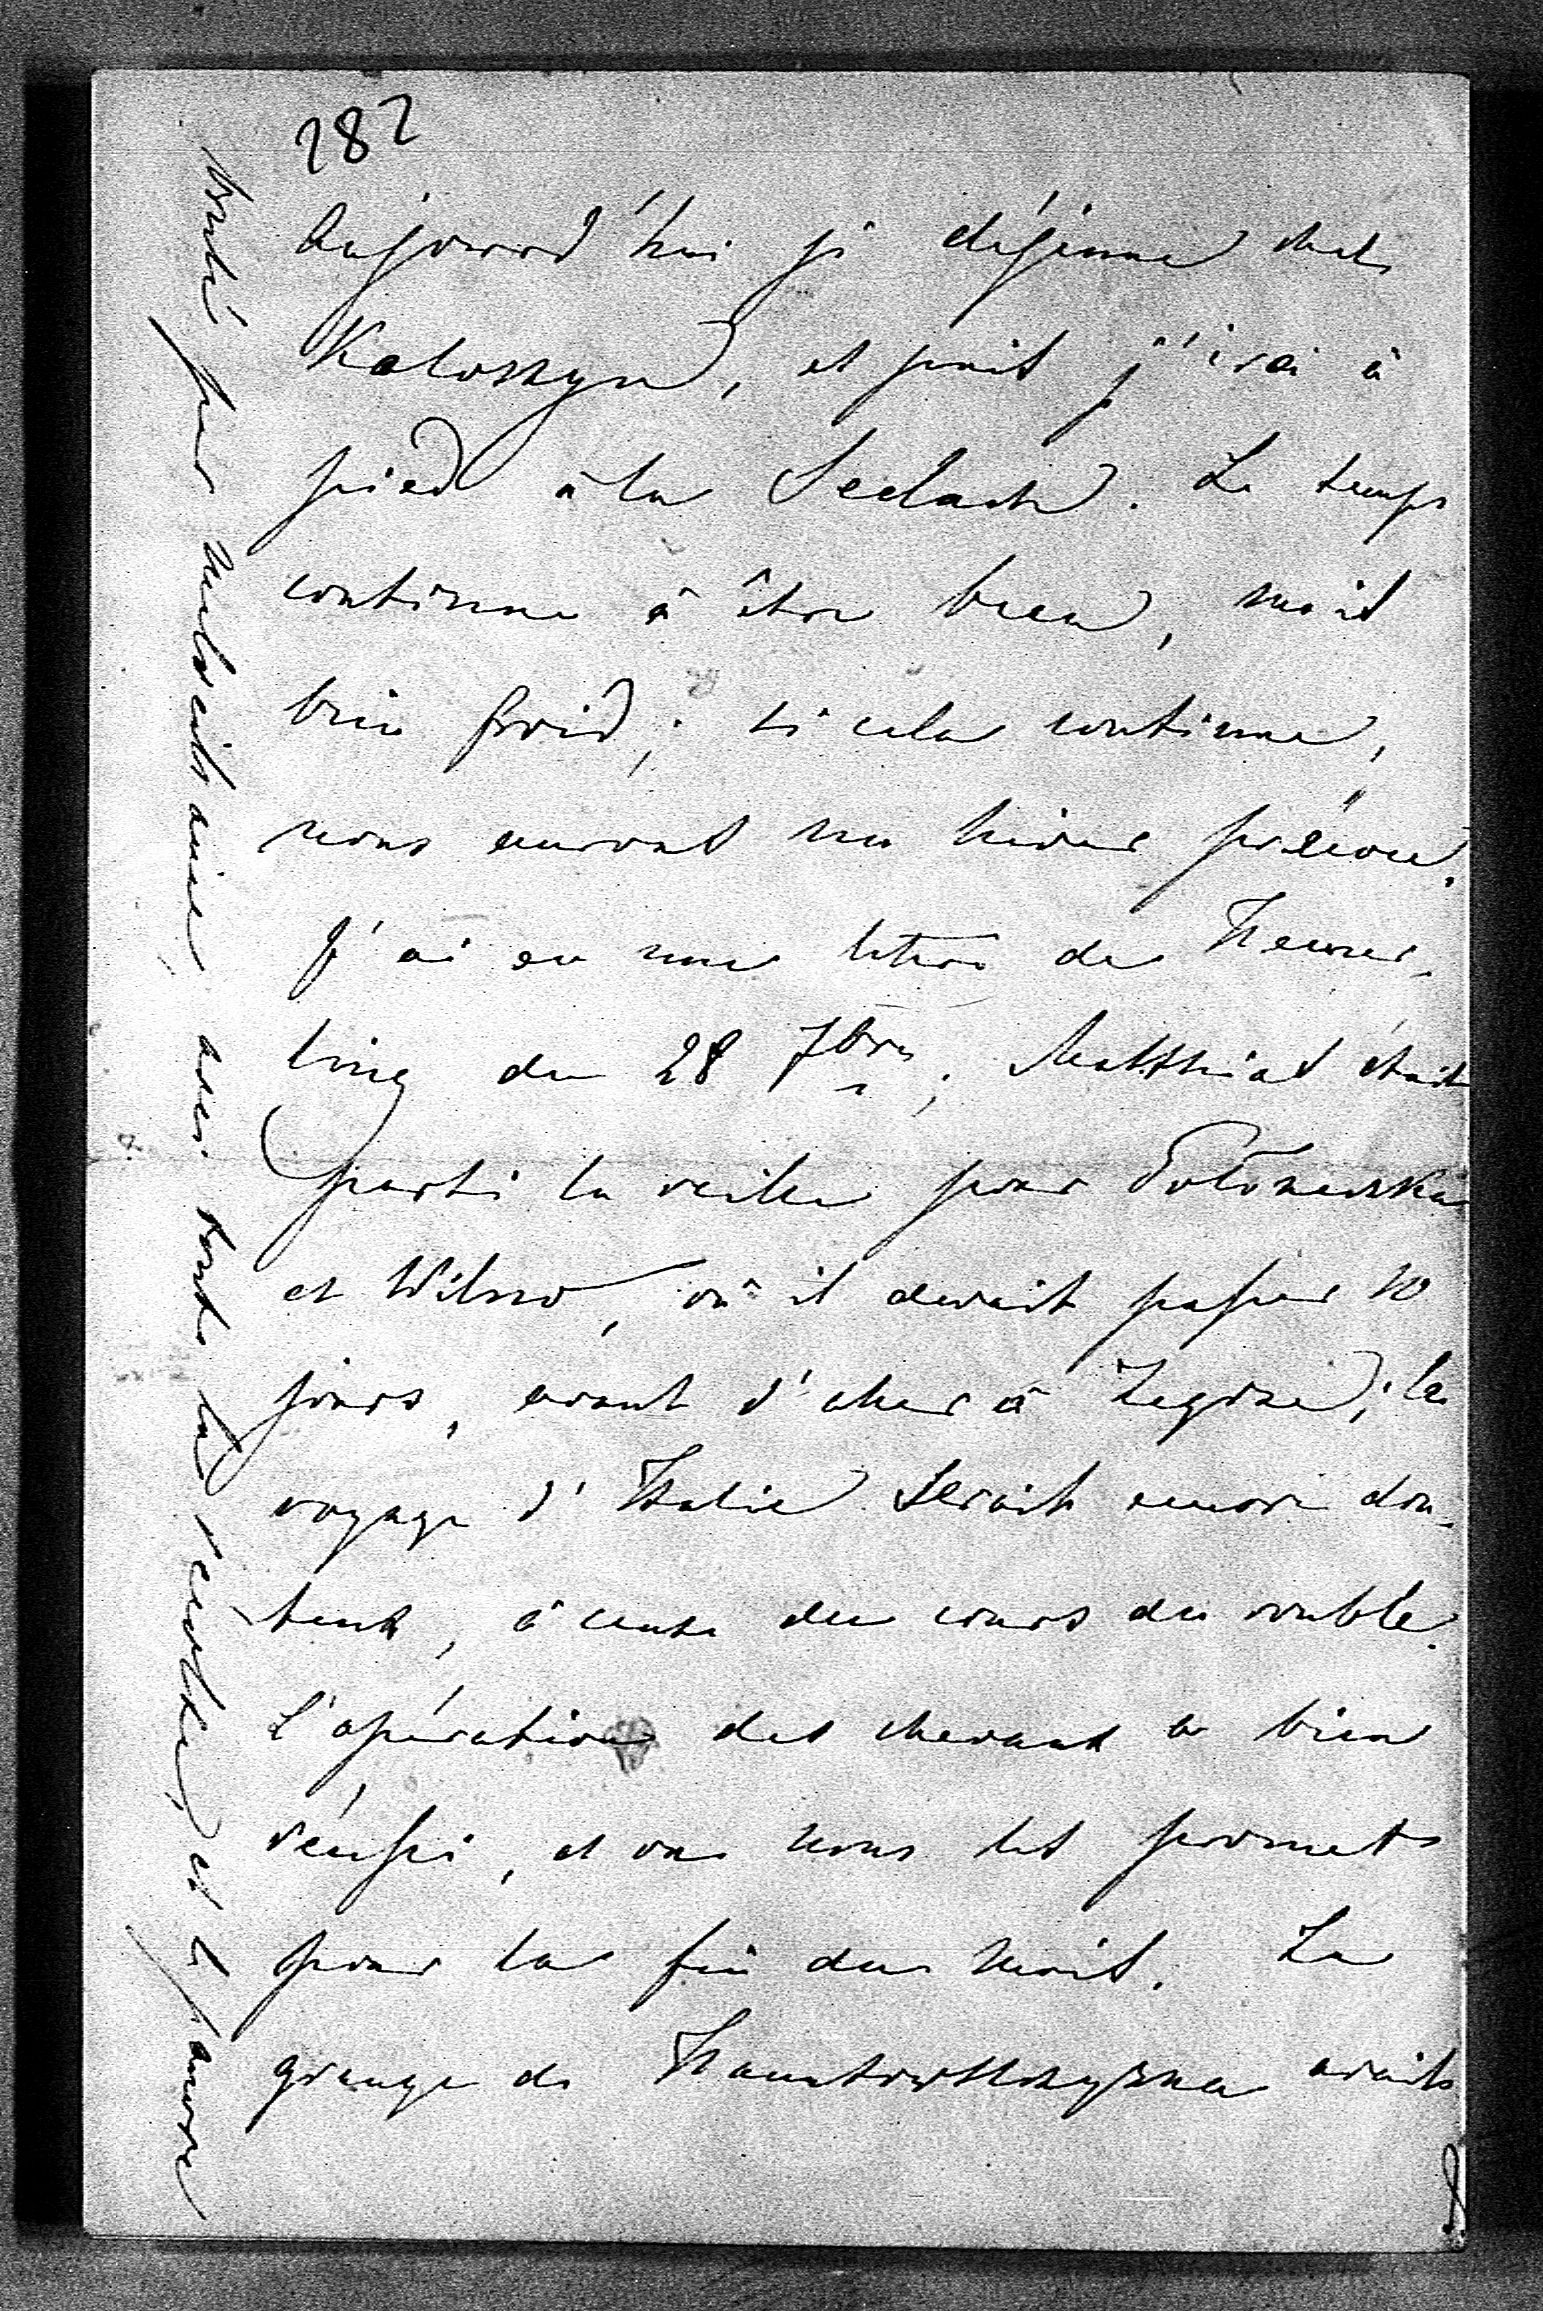 282
Aujourd'hui je déjeune chez
Kaloszyn, et puis j'irai à
pied à la Seelach. Le temps
continue à être beau, mais
bien froid; si cela continue,
nous aurons un hiver précoce.
J'ai eu une lettre de Heuser-
ling du 28 7bre; Matthias était
parti la veille pour
et Wilno, où il devait passer 10
jours, avant d'aller à Zegrze; le
voyage d'Italie serait encore dou-
teux, à cause du cours du rouble.
L'opération des chevaux a bien
réussi, et on nous les promet
pour la fin du mois. La
grange de avait
brulé par malveillance avec toute la récolte, et le pauvre